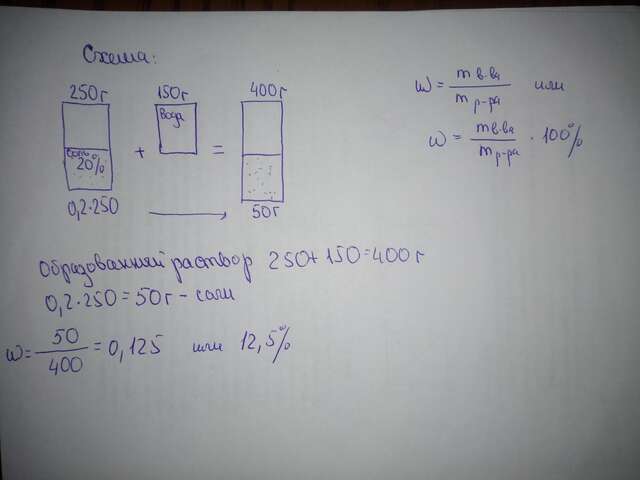 Схема:
250г 150г 400г
соль
20%
вода
+ =
0,2·250 → 50г
ω = m в-ва / m р-ра или
ω = m в-ва / m р-ра · 100%
Образованный раствор 250+150=400г
0,2·250=50г - соли
ω = 50 / 400 = 0,125 или 12,5%